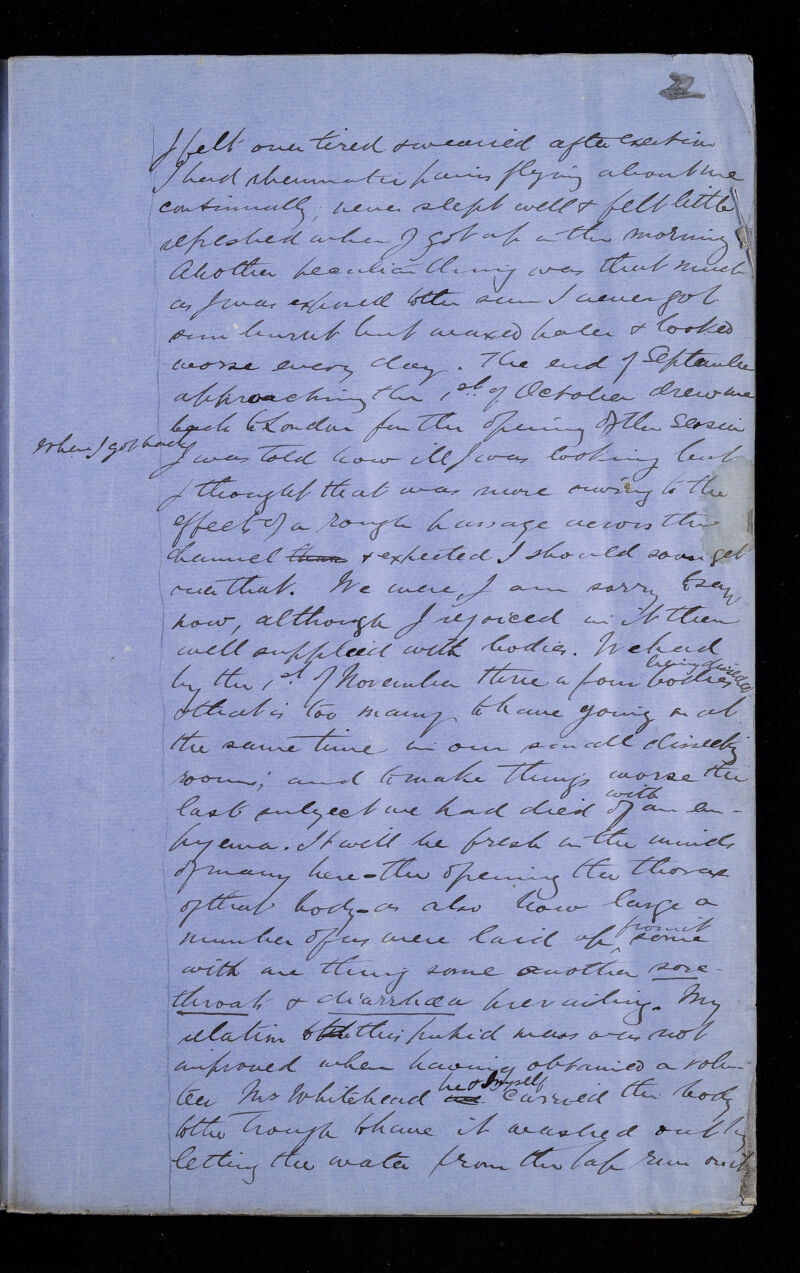 2
I felt over tired & wearied after exertion
I had rheumatic pains flying about me
continually, never slept well & felt little
refreshed when I got up in the morning
Another peculiar thing was that much
as I was exposed to the sun I never got
sun burnt but waxed paler & looked
worse every day. The end of September
approaching the 1st of October drew me
back to London for the opening of the Session
When I got back
I was told how ill I was looking but
I thought that was more owing to the
effects of a rough passage across the
channel & expected I should soon get
over that. We were, I am sorry to say
now, although I rejoiced in it then
well supplied with bodies. We had
being dissected
by the 1st of November three or four bodies
& that is too many to have going on at
the same time in our small dissecting
room; and to make things worse the
with
last subject we had died of an em-
pyema. It will be fresh in the minds
of many here - the opening the thorax
of that body - as also how large a
from it
number of us were laid up, some
with one thing some another sore-
throats & diarrhœa prevailing. My
relation to this putrid mass was not
improved when having obtained a volun
he & myself
teer Mr Whitehead carried the body
to the trough to have it washed out by
letting the water from the tap run on it